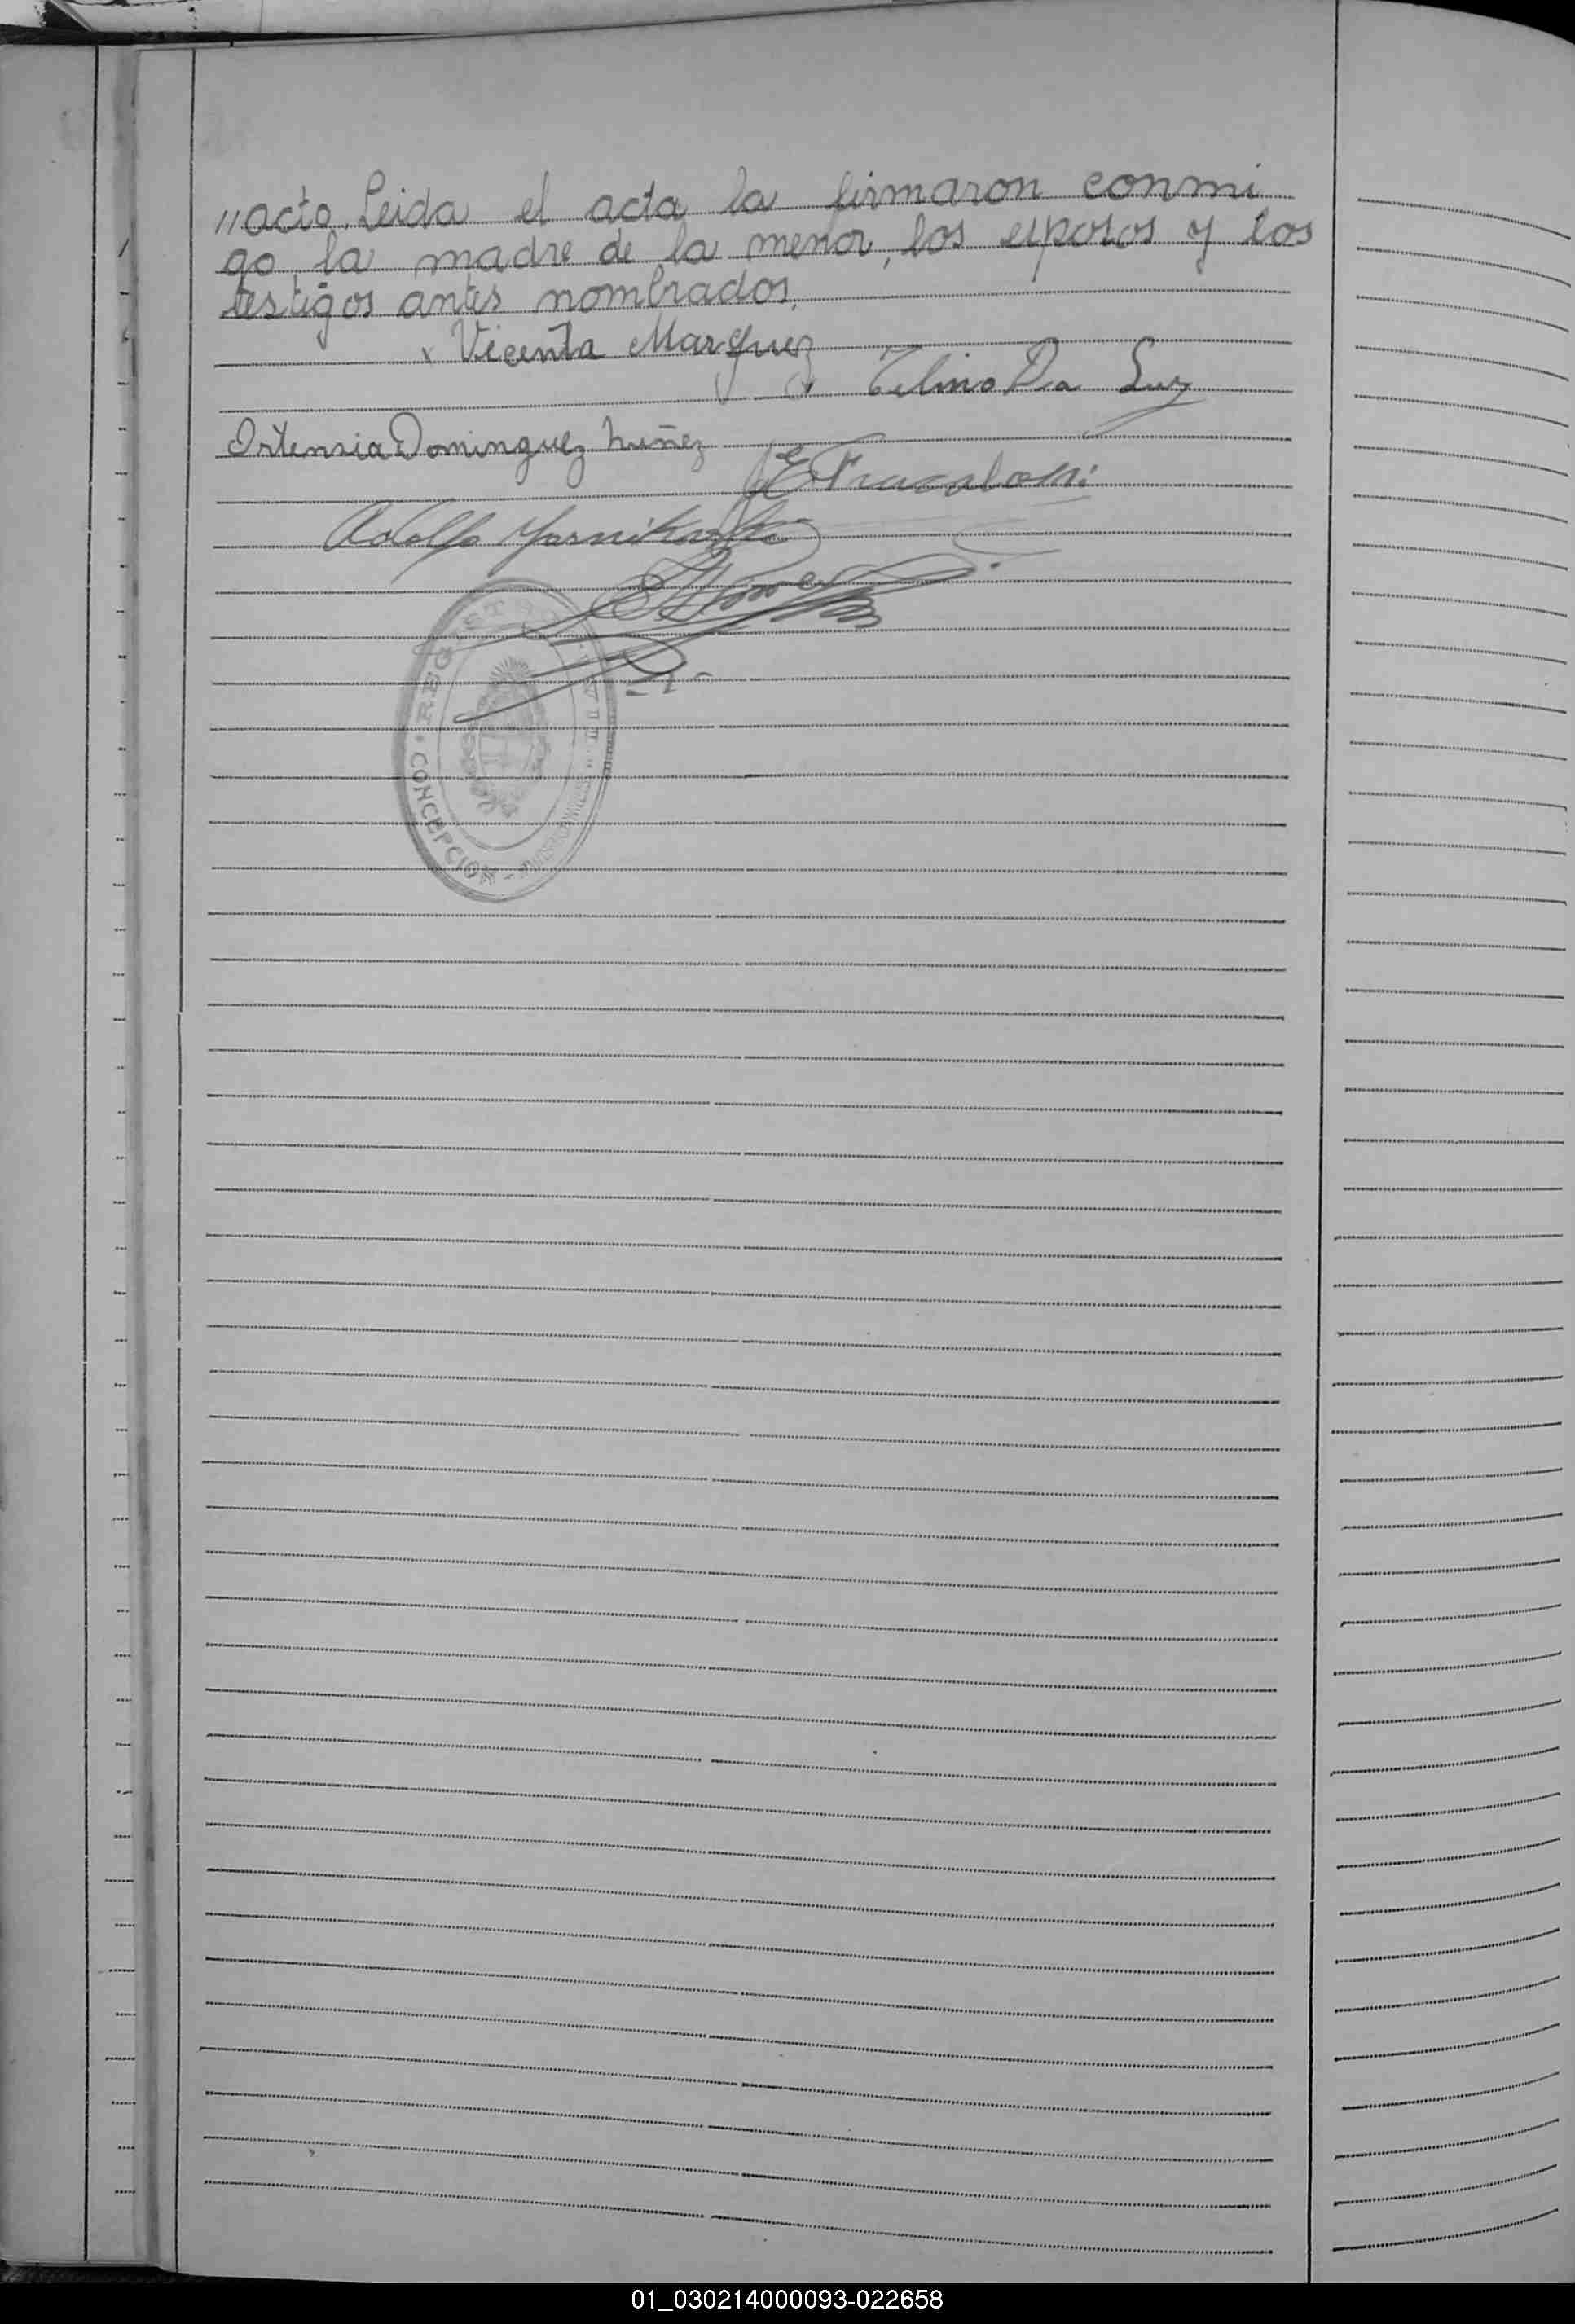 "acto. Leida el acta la firmaron conmi
go, la madre de la menor, los esposos y los
testigos antes nombrados.
x Vicenta Marquez
Telmo Da Luz
Ortensia Dominguez Nuñez
Adolfo
REGISTRO CIVIL
CONCEPCION - MISIONES
01_030214000093-022658